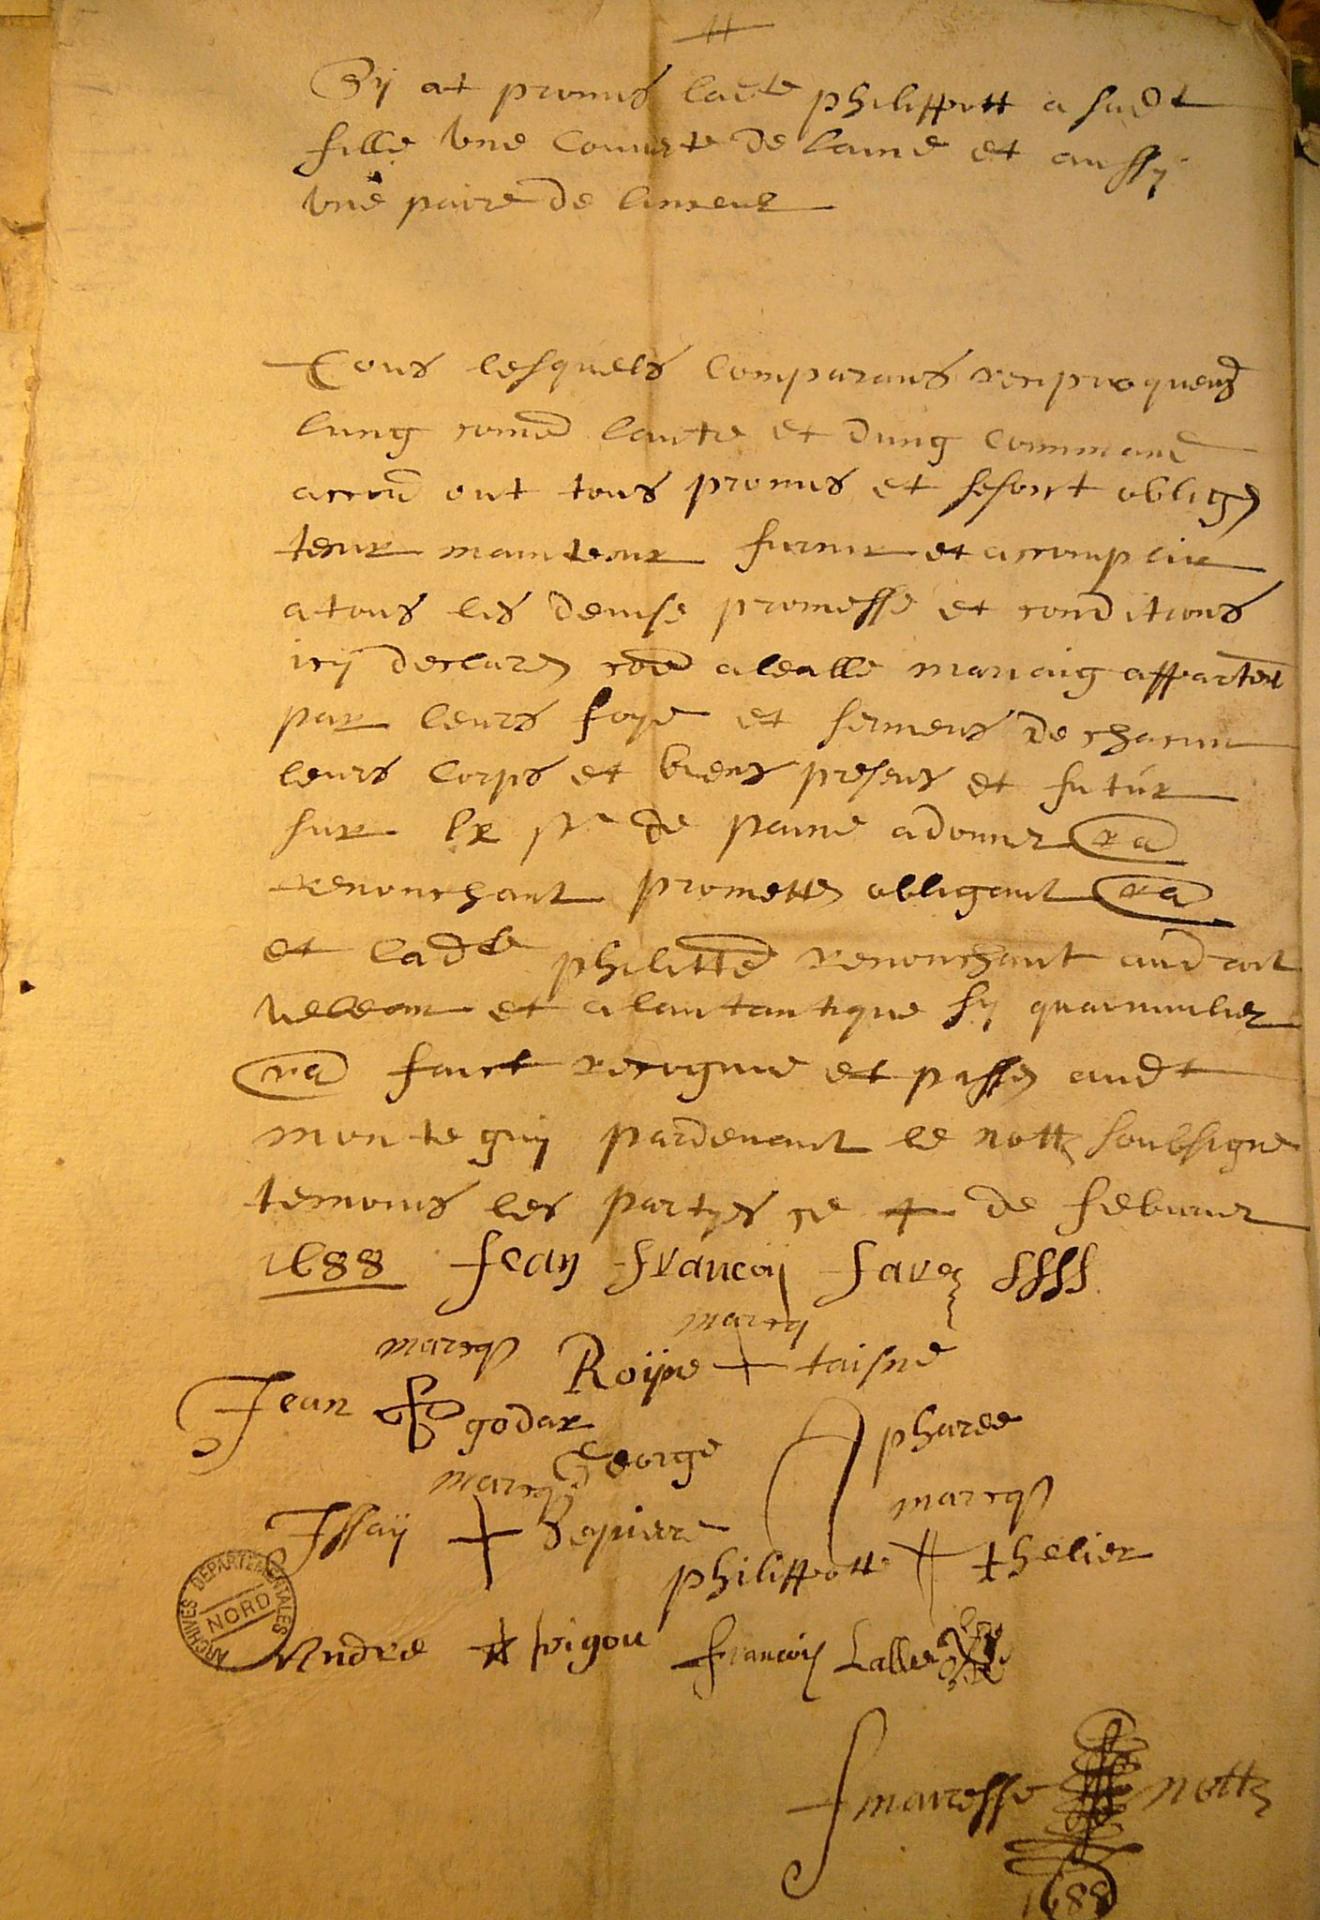 Sy at promis ladte philippott a sadt
fille une couverte de laine et aussy
une paire de linseux
Tous lesquels comparans reciproquemt
lung come lautre et dung command
accord ont tous promis et se sont obliges
tenir maintenir furnir et accomplir
a tous les devise promesse et conditions
icy declares coe a lealle mariaig appartent
par leurs foye et sermens de chacun
leurs corps et biens presens et futur
sur de paine a donner
renonchant promettes obligant
et ladte philitte renonchant au droit
velleain et a lautantique sy qua mulier
faict recognu et passes audt
monteguy pardevant le nott soubsigne
temoins les partyes ce de febvrier
1688 Jean Francoij
marcq
marcq Roijne taisne
Jean godar
George pharee
marcq marcq
Issaij Depierre
philippotte thelier
ARCHIVES DEPARTEMENTALES NORD
Andre pigou Francois Laller
maresse nott
1688